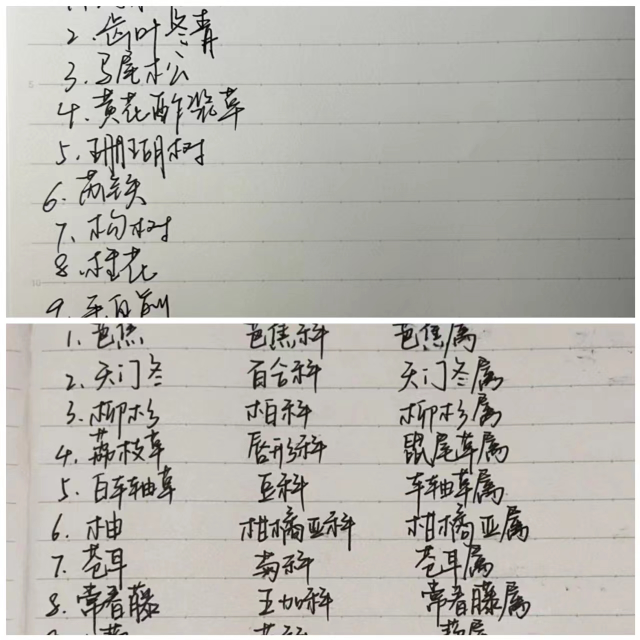 2. 齿叶冬青
3. 马尾松
4. 黄花酢浆草
5. 珊瑚树
6. 苏铁
7. 构树
8. 桂花
9.
1. 芭蕉 芭蕉科 芭蕉属
2. 天门冬 百合科 天门冬属
3. 柳杉 柏科 柳杉属
4. 荔枝草 唇形科 鼠尾草属
5. 白车轴草 豆科 车轴草属
6. 柚 柑橘亚科 柑橘亚属
7. 苍耳 菊科 苍耳属
8. 常春藤 五加科 常春藤属